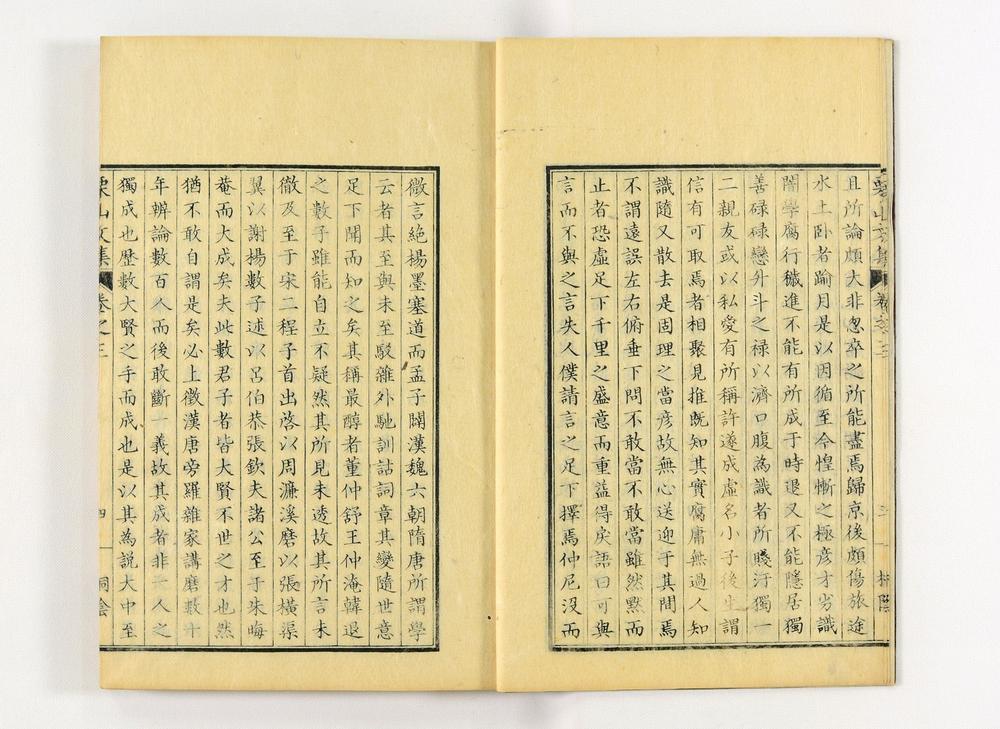 栗山文集 卷之三 三 桐陰
且所論頗大非忽卒之所能盡焉歸京後頗傷旅途
水土卧者踰月是以因循至今惶慚之極彦才劣識
闇學腐行穢進不能有所成于時退又不能隱居獨
善碌碌戀升斗之禄以濟口腹為識者所賤汙獨一
二親友或以私愛有所稱許遂成虛名小子後生謂
信有可取焉者相聚見推既知其實腐庸無過人知
識隨又散去是固理之當彦故無心送迎于其間焉
不謂遠誤左右俯垂下問不敢當不敢當雖然黙而
止者恐虛足下千里之盛意而重益得戾語曰可與
言而不與之言失人僕請言之足下擇焉仲尼没而
微言絶楊墨塞道而孟子闢漢魏六朝隋唐所謂學
云者其至與未至駁雜外馳訓詁詞章其變隨世意
足下聞而知之矣其稱最醇者董仲舒王仲淹韓退
之數子雖能自立不疑然其所見未透故其所言未
徹及至于宋二程子首出啓以周濂溪磨以張橫渠
翼以謝楊數子述以呂伯恭張欽夫諸公至于朱晦
菴而大成矣夫此數君子者皆大賢不世之才也然
猶不敢自謂是矣必上徴漢唐旁羅雜家講磨數十
年辨論數百人而後敢斷一義故其成者非一人之
獨成也歷數大賢之手而成也是以其為説大中至
栗山文集 卷之三 四 桐陰